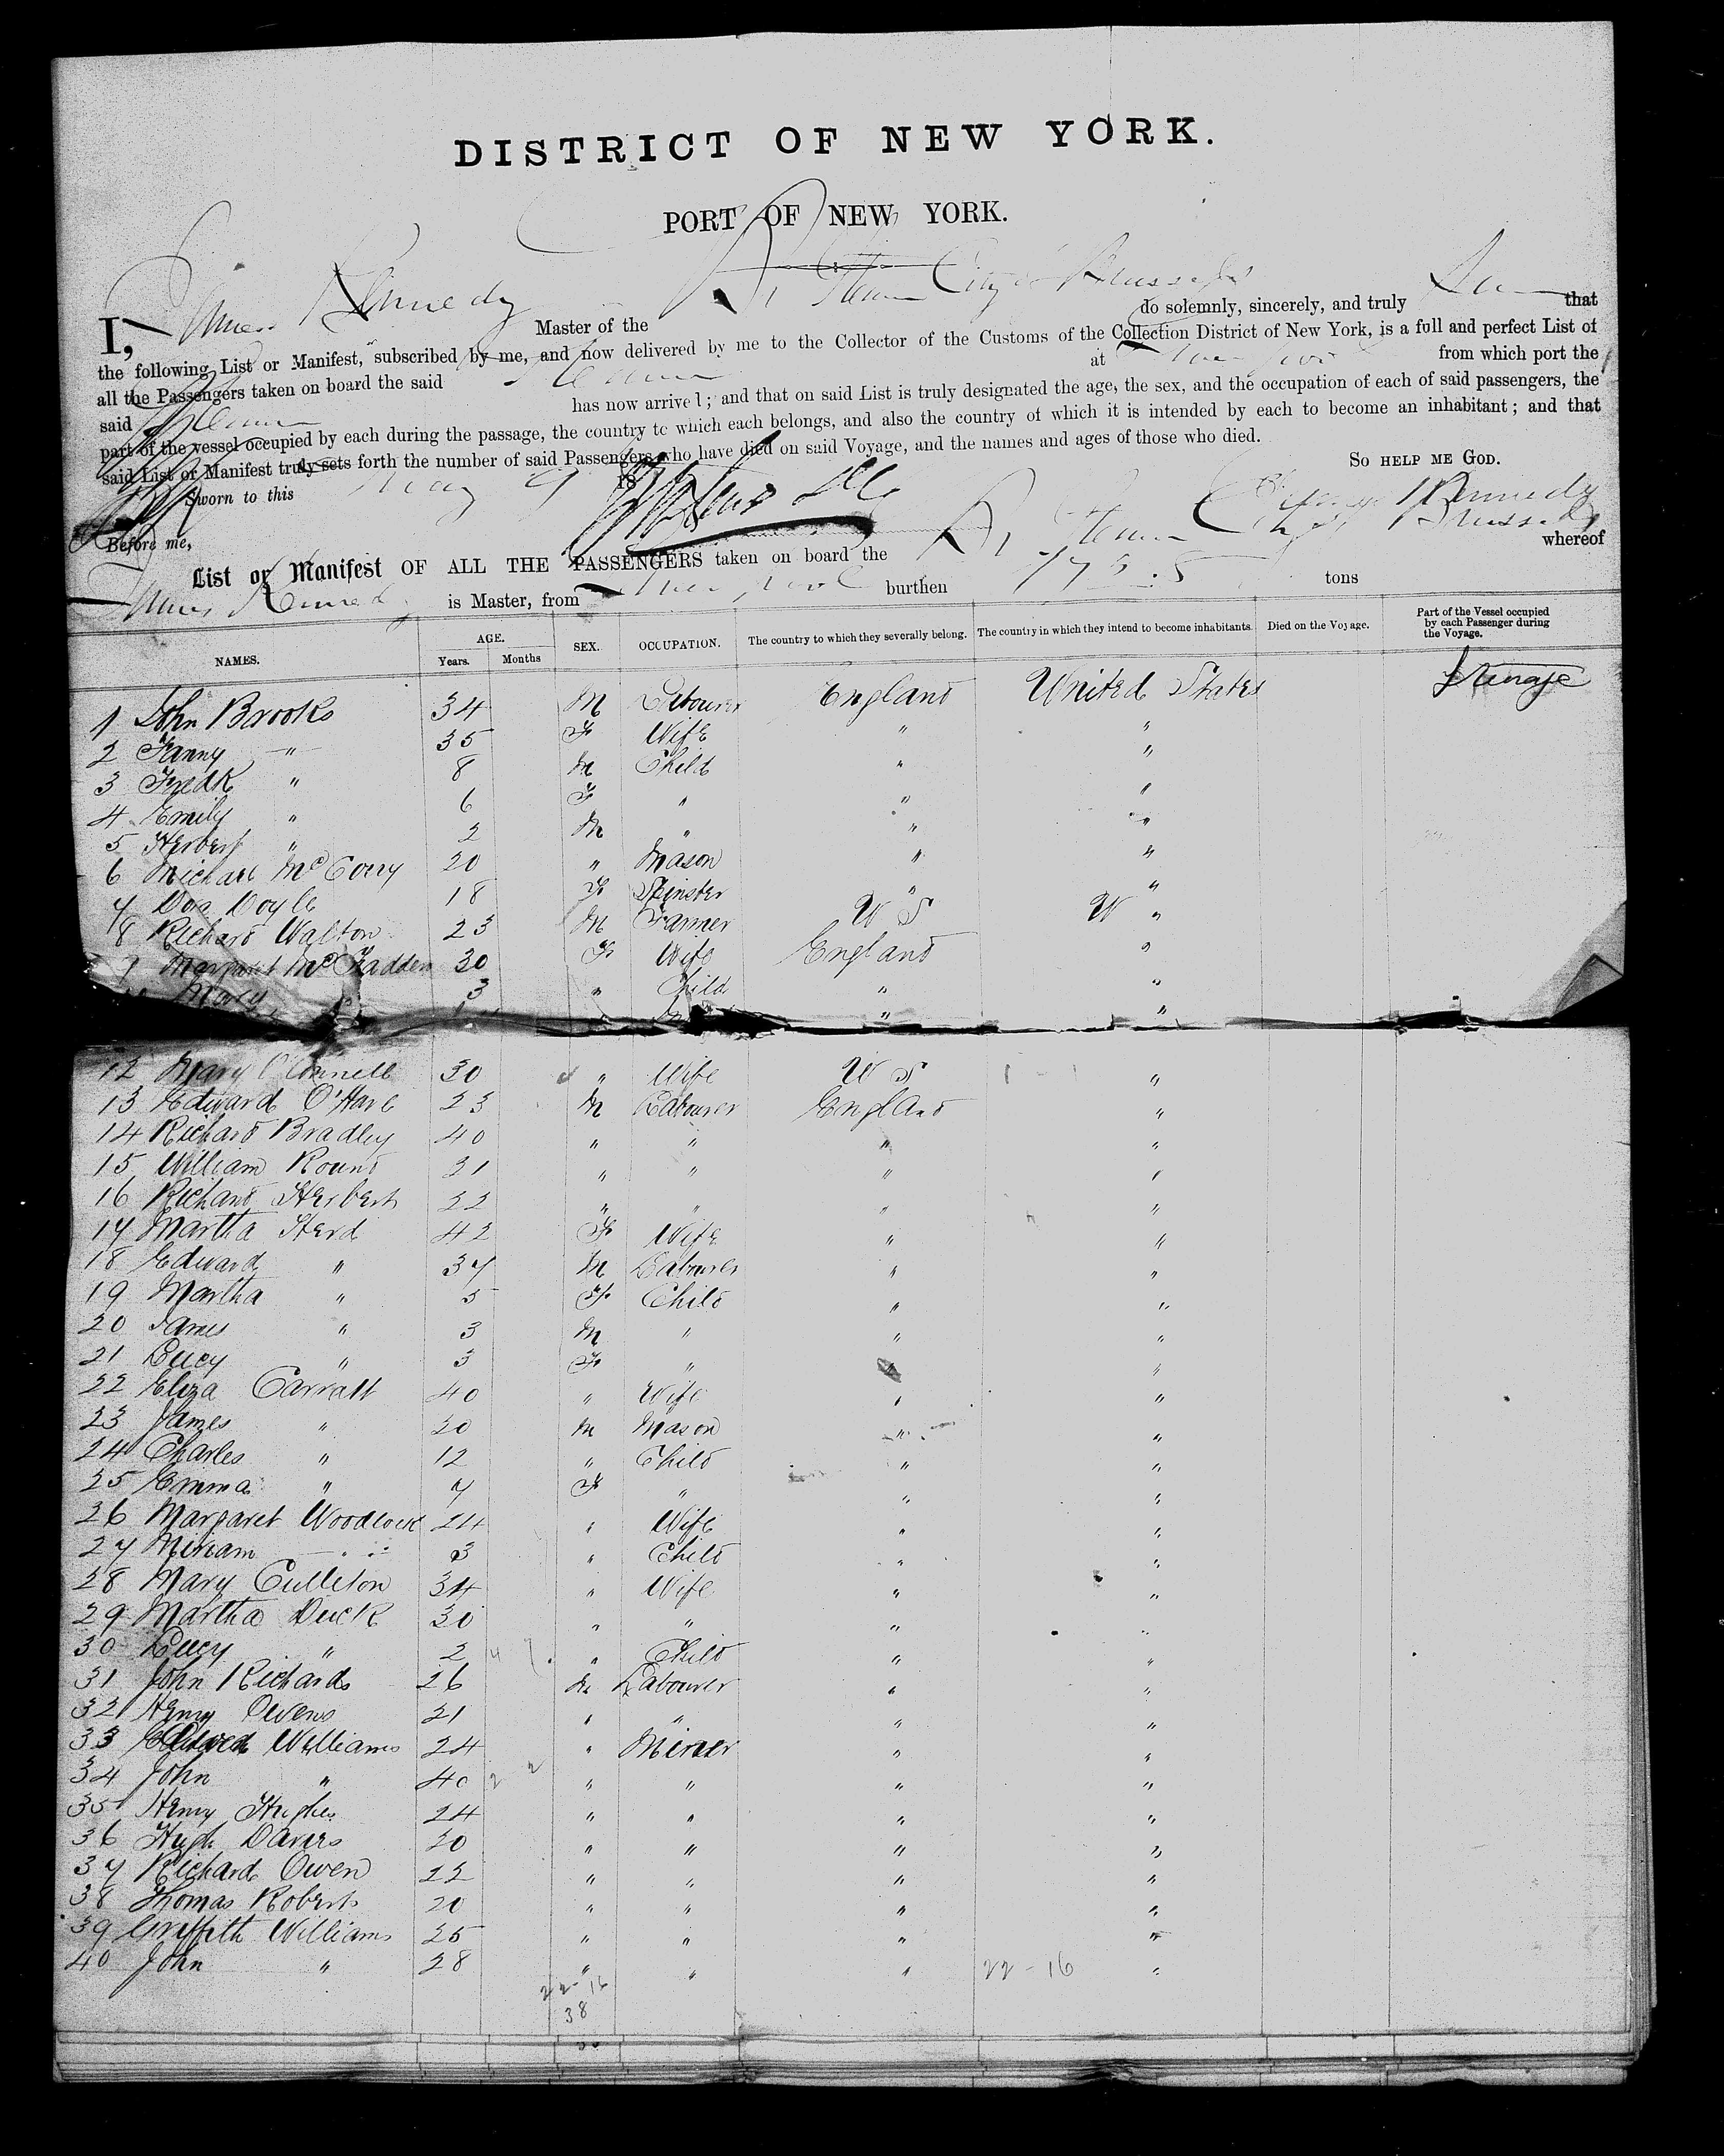 DISTRICT OF NEW YORK.
PORT OF NEW YORK.
I, James Kennedy Master of the Br Steamer City of Brussels do solemnly, sincerely, and truly that
the following List or Manifest, subscribed by me, and now delivered by me to the Collector of the Customs of the Collection District of New York, is a full and perfect List of
all the Passengers taken on board the said Steamer at Liverpool from which port the
said Steamer has now arrived; and that on said List is truly designated the age, the sex, and the occupation of each of said passengers, the
part of the vessel occupied by each during the passage, the country to which each belongs, and also the country of which it is intended by each to become an inhabitant; and that
said List or Manifest truly sets forth the number of said Passengers who have died on said Voyage, and the names and ages of those who died.
SO HELP ME GOD.
Sworn to this May 9 18
Kennedy
Before me,
List or Manifest OF ALL THE PASSENGERS taken on board the Br Steamer City of Brussels whereof
James Kennedy is Master, from Liverpool burthen tons
NAMES. AGE. Years. Months SEX. OCCUPATION. The country to which they severally belong. The country in which they intend to become inhabitants. Died on the Voyage. Part of the Vessel occupied by each Passenger during the Voyage.
1 John Brooks 34 M Labourer England United States Steerage
2 Fanny " 35 F Wife " "
3 Fredk " 8 M Child " "
4 Emily " 6 F " " "
5 Herbert " 2 M " " "
6 Michael McCorry 20 " Mason " "
7 Doyle 18 F Spinster " "
8 Richard Walton 23 M Farmer U S U "
9 Margaret McFadden 30 F Wife England "
Mary 3 " Child " "
" "
12 Mary O'Connell 30 " Wife U S "
13 Edward O'Hare 23 M Labourer England "
14 Richard Bradley 40 " " " "
15 William Round 21 " " " "
16 Richard Herbert 22 " " " "
17 Martha Herd 42 F Wife " "
18 Edward " 37 M Labourer " "
19 Martha " 5 F Child " "
20 James " 3 M " " "
21 Lucy " 3 F " " "
22 Eliza Carratt 40 " Wife " "
23 James " 20 M Mason " "
24 Charles " 12 " Child " "
25 Emma " 7 F " " "
26 Margaret Woodlock 24 " Wife " "
27 Miriam " 3 " Child " "
28 Mary Culleton 34 " Wife " "
29 Martha Duck 30 " " " "
30 Lucy " 2 " Child " "
31 John Richards 26 M Labourer " "
32 Henry Owens 21 " " " "
33 Edward Williams 24 " Miner " "
34 John " 40 " " " "
35 Henry Hughes 24 " " " "
36 Hugh Davies 20 " " " "
37 Richard Owen 22 " " " "
38 Thomas Roberts 20 " " " "
39 Griffith Williams 25 " " " "
40 John " 28 " " " 22-16 "
22-16
38